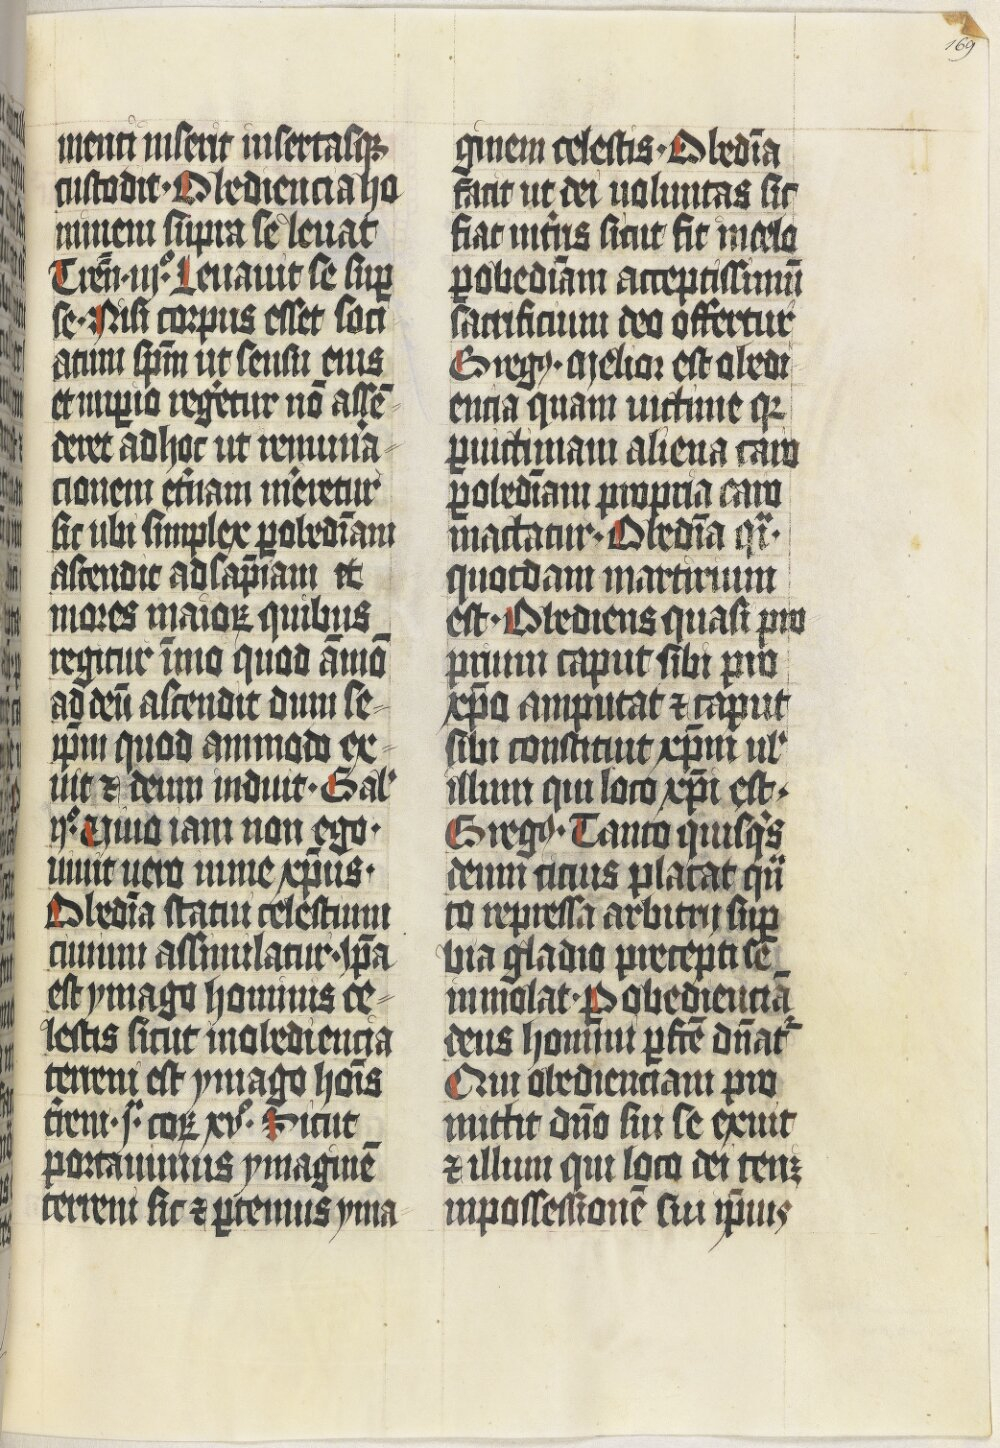 169
menti inserit insertasqꝫ
custodit · Obediencia ho
minem supra se leuat
Tren̄ · iijº · Leuauit se sup̱
se · Nisi corpus esset soci
atum sp̄m ut sensu eius
et imp̱io reg̕etur nō assē
deret ad hoc ut remun̕a
cionem et̕nam m̕eretur
sic ubi simplex ꝑ obed̄iam
ascendit ad sap̄iam et
mores maioꝝ quibus
regitur īmo quod āmō
ad deū ascendit dum se
ip̄m quod ammodo ex
uit ⁊ deum induit · Gal̕
ijº · Viuo iam non ego ·
uiuit uero in me xp̄us ·
Obed̄ia statui celestium
ciuium assimulatur · Ip̄a
est ymago hominis ce
lestis sicut inobediencia
terreni est ymago hoīs
t̄reni · j̊ · coꝝ xvº · Sicut
portauimus ymaginē
terreni sic ⁊ ꝑtemus yma
ginem celestis · Obed̄ia
facit ut dei uoluntas sic
fiat in t̕ris sicut fit in celo
ꝑ obed̄iam acceptissimū
sacrificium deo offertur
Gregꝰ · Melior est obedi
encia quam uictime qꝛ
ꝑ uictimam aliena caro
ꝑ obed̄iam propria caro
mactatur · Obed̄ia qͥ ·
quoddam martirium
est · Obediens quasi pro
prium caput sibi pro
xp̄o amputat ⁊ caput
sibi constituit xp̄m ul̕
illum qui loco xp̄i est ·
Gregꝰ · Tanto quisqͥs
deum cicius placat qͣ
to repressa arbitrij sup̱
bia gladio precepti se
immolat · P obedienciā
deus homini ꝑfcē dn̄at̕
Qui obedienciam pro
mittit dn̄o sui se exuit
⁊ illum qui loco dei tenꝫ
in possessionē sui ip̄ius